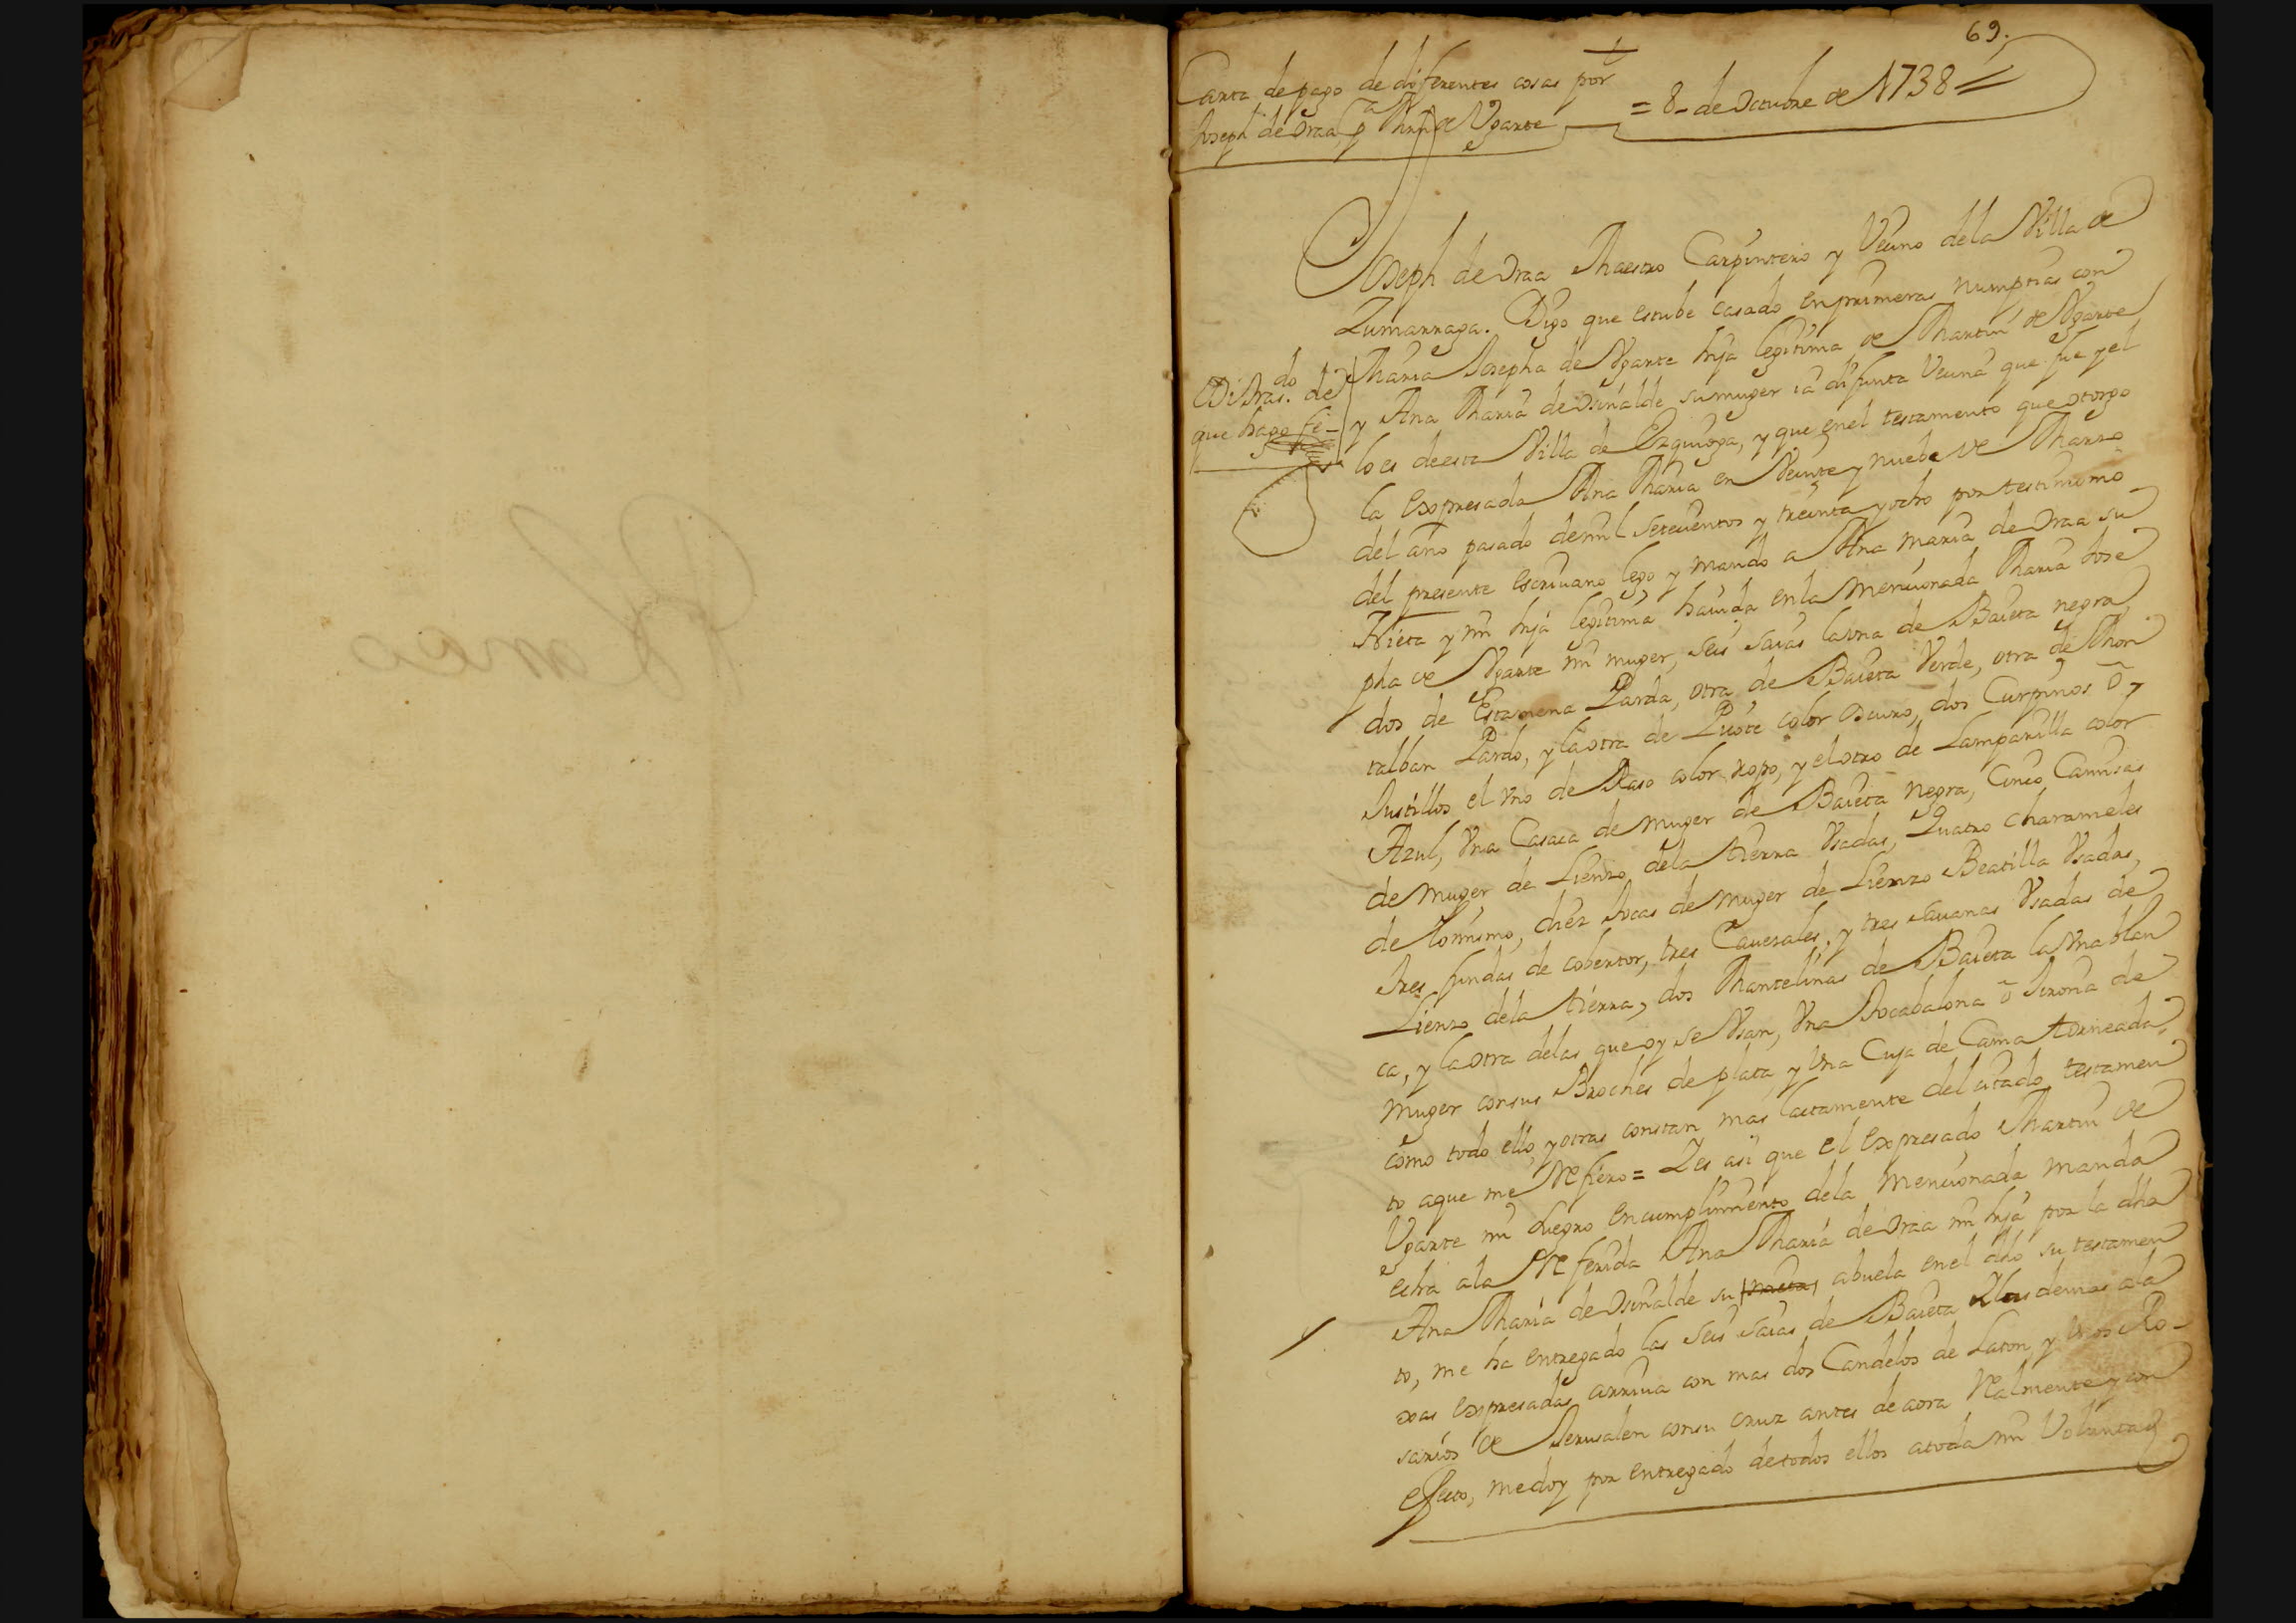 69.
Carta de pago de diferentes cosas por
Joseph de Oraa, p.ª Mrn de Vgarte
= 8 - de Octubre de 1738 =
Joseph de Oraa Maestro Carpintero y Vecino dela Villa de
Zumarraga. Digo que estube casado en primeras numptias con
Maria Josepha de Vgarte hija legitima de Martin de Vgarte
y Ana Maria de Osinalde su muger ia difunta Vecina que fue y el
lo es de esta Villa de Ezquioga, y que en el testamento que otorgo
la Expresada Ana Maria en Veinte y nuebe de Marzo
del año pasado de mil setecientos y treinta y ocho por testimonio
del presente escriuano lego y mando a Ana maria de Oraa su
Nieta y mi hija legitima hauida en la mencionada Maria Jose
pha de Vgarte mi muger, seis saias la vna de Baieta negra,
dos de Estamena Parda, otra de Baieta Verde, otra de Mon
talban Pardo, y la otra de Picote color oscuro, dos Curpinos õ
Justillos el vno de Raso color roxo, y el otro de Lamparilla color
Azul, vna Casaca de muger de Baieta negra, Cinco Camisas
de Muger de Lienzo dela tierra Vsadas, Quatro charameles
de lo mismo, diez tocas de muger de Lienzo Beatilla Vsadas,
tres fundas de cobertor, tres Cauezales, y tres sauanas Vsadas de
Lienzo dela tierra, dos Mantelinas de Baieta la vna blan
ca, y la otra delas que oy se Vsan, Vna
muger con sus Broches de plata y vna Cuja de Cama torneada
como todo ello, y otras constan mas lactamente del citado testamen
to aque me refiero = Y es asi que el Expresado Martin de
Vgarte mi suegro en cumplimiento dela mencionada manda
echa ala referida Ana Maria de Oraa mi hija por la dha
Ana Maria de Osinalde su nieta abuela en el dho su testamen
to, me ha entregado las seis saias de Baieta y las demas ala
xas Expresadas arriua con mas dos Candelos de Laton, y vnos Ro-
sarios de Jerusalen con su cruz antes de aora realmente y con
efecto, me doy por entregado de todos ellos a toda mi Voluntad
do
de
que hago fe -
Blanco